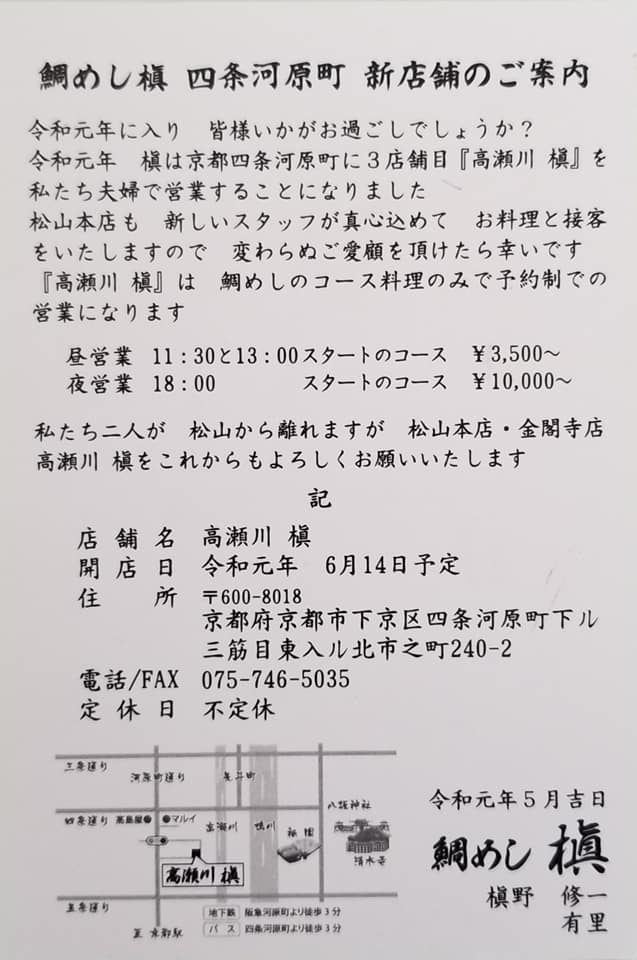 鯛めし槇 四条河原町 新店舗のご案内
令和元年に入り 皆様いかがお過ごしでしょうか?
令和元年 槇は京都四条河原町に3店舗目『高瀬川 槇』を
私たち夫婦で営業することになりました
松山本店も 新しいスタッフが真心込めて お料理と接客
をいたしますので 変わらぬご愛顧を頂けたら幸いです
『高瀬川 槇』は 鯛めしのコース料理のみで予約制での
営業になります
昼営業 11:30と13:00スタートのコース ¥3,500~
夜営業 18:00 スタートのコース ¥10,000~
私たち二人が 松山から離れますが 松山本店・金閣寺店
高瀬川 槇をこれからもよろしくお願いいたします
記
店舗名 高瀬川 槇
開店日 令和元年 6月14日予定
住所 〒600-8018
京都府京都市下京区四条河原町下ル
三筋目東入ル北市之町240-2
電話/FAX 075-746-5035
定休日 不定休
三条通り
河原町通り
先斗町
四条通り
高島屋
マルイ
高瀬川
鴨川
祇園
八坂神社
清水寺
高瀬川 槇
五条通り
至 京都駅
地下鉄 阪急河原町より徒歩3分
バス 四条河原町より徒歩3分
令和元年5月吉日
鯛めし 槇
槇野 修一
有里